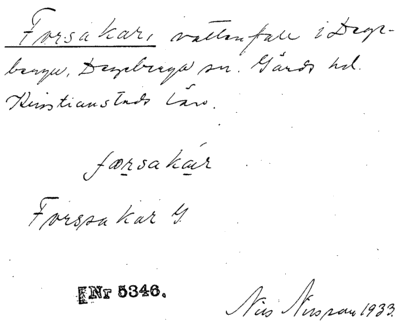 Forsakar, vattenfall i Dege-
berga, Degeberga sn. Gärds hd.
Kristianstads län.
forsakár
Forssakar G
Nr 5346.
Nils Nilsson 1933.